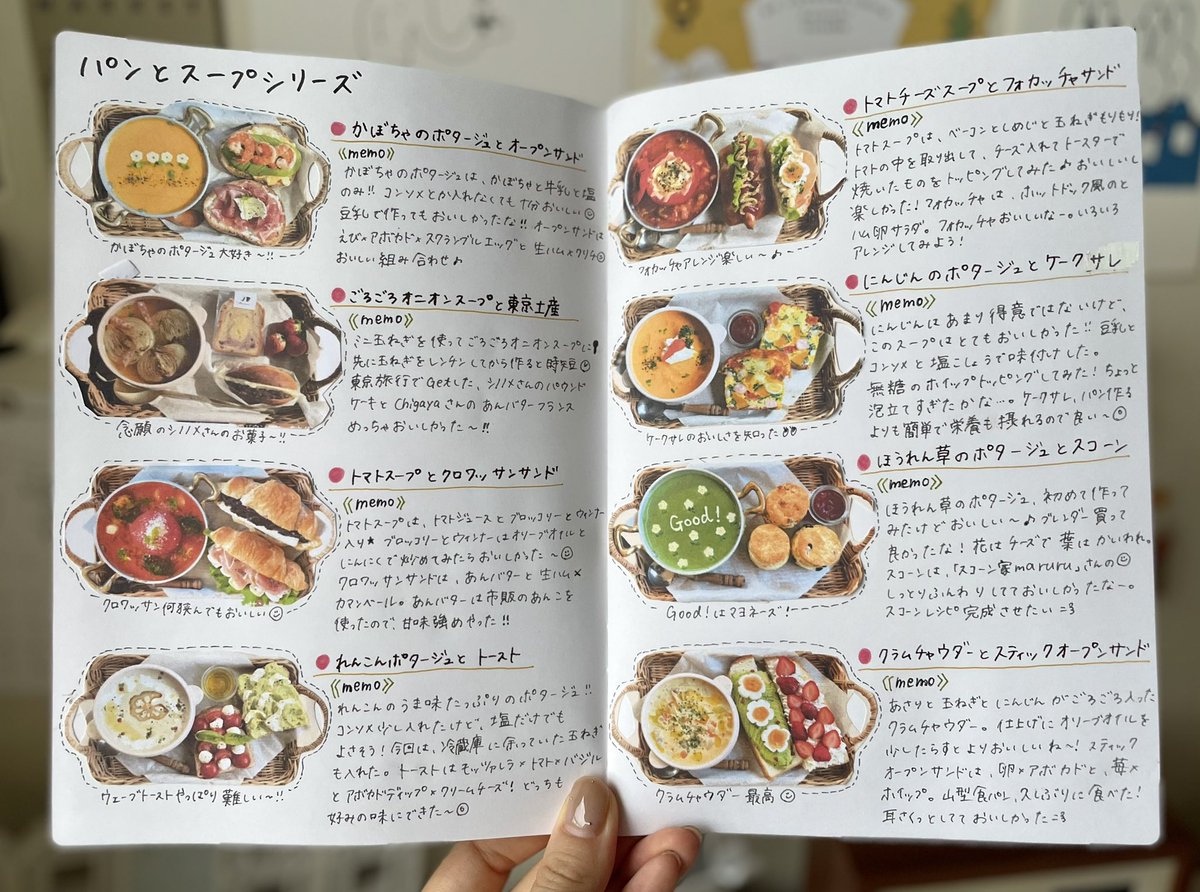 パンとスープシリーズ
かぼちゃのポタージュとオープンサンド
《memo》
かぼちゃのポタージュは、かぼちゃと牛乳と塩
のみ!! コンソメとか入れなくても十分おいしい
豆乳で作ってもおいしかったな!! オープンサンドは
えび×アボカド×スクランブルエッグと生ハム×クリチ
おいしい組み合わせ♪
かぼちゃのポタージュ大好き〜!!
ごろごろオニオンスープと東京土産
《memo》
ミニ玉ねぎを使ってごろごろオニオンスープに!
先に玉ねぎをレンチンしてから作ると時短
東京旅行でGetした、シノノメさんのパウンド
ケーキとChigayaさんのあんバターフランス
めっちゃおいしかった〜!!
念願のシノノメさんのお菓子〜!!
トマトスープとクロワッサンサンド
《memo》
トマトスープは、トマトジュースとブロッコリーとウィンナー
入り★ ブロッコリーとウィンナーはオリーブオイルと
にんにくで炒めてみたらおいしかった〜
クロワッサンサンドは、あんバターと生ハム×
カマンベール。あんバターは市販のあんこを
使ったので甘味強めやった!!
クロワッサン何挟んでもおいしい
れんこんポタージュとトースト
《memo》
れんこんのうま味たっぷりのポタージュ!!
コンソメ少し入れたけど、塩だけでも
よさそう!今回は、冷蔵庫に余っていた玉ねぎ
も入れた。トーストはモッツァレラ×トマト×バジル
とアボカドディップ×クリームチーズ!どっちも
好みの味にできた〜
ウェーブトーストやっぱり難しい〜!!
トマトチーズスープとフォカッチャサンド
《memo》
トマトスープは、ベーコンとしめじと玉ねぎもりもり!
トマトの中を取り出して、チーズ入れてトースターで
焼いたものをトッピングしてみた♪おいしいし
楽しかった!フォカッチャは、ホットドック風のと
ハム卵サラダ。フォカッチャおいしいなー。いろいろ
アレンジしてみよう!
フォカッチャアレンジ楽しい〜♪
にんじんのポタージュとケークサレ
《memo》
にんじんはあまり得意ではないけど、
このスープはとてもおいしかった!! 豆乳と
コンソメと塩こしょうで味付けした。
無糖のホイップトッピングしてみた!ちょっと
泡立てすぎたかな…。ケークサレ、パン作る
よりも簡単で栄養も摂れるので良い〜
ケークサレのおいしさを知った
ほうれん草のポタージュとスコーン
《memo》
ほうれん草のポタージュ、初めて作って
みたけどおいしい〜♪ブレンダー買って
良かったな!花はチーズで葉はかいわれ。
スコーンは、「スコーン家maruru」さんの
しっとりふんわりしてておいしかったな〜。
スコーンレシピ完成させたい
Good!
Good!はマヨネーズ!
クラムチャウダーとスティックオープンサンド
《memo》
あさりと玉ねぎとにんじんがごろごろ入った
クラムチャウダー。仕上げにオリーブオイルを
少したらすとよりおいしいね〜!スティック
オープンサンドは、卵×アボカドと、苺×
ホイップ。山型食パン、久しぶりに食べた!
耳さくっとしてておいしかった
クラムチャウダー最高